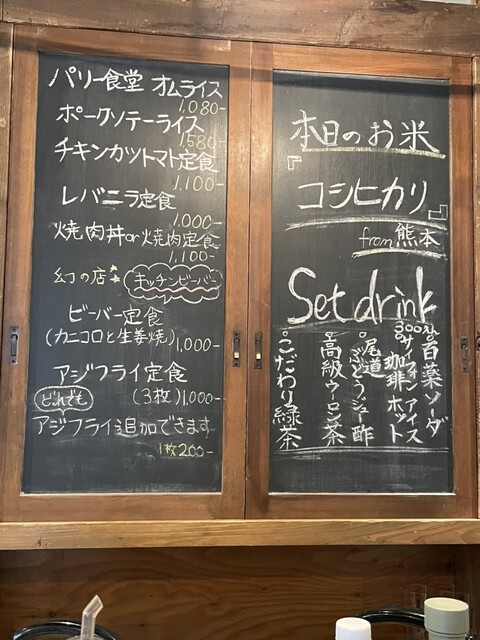 パリー食堂 オムライス
1,080-
ポークソテーライス
1,580-
チキンカツトマト定食
1,100-
レバニラ定食
1,000-
焼肉丼or焼肉定食
1,100-
幻の店 キッチンビーバー
ビーバー定食
(カニコロと生姜焼)1,000-
アジフライ定食
どれでも (3枚)1,000-
アジフライ追加できます
1枚200-
本日のお米
『コシヒカリ』
from熊本
Set drink
300えん
百薬ソーダ
サイフォンアイス
珈琲ホット
尾道ぶどうジュー酢
高級ウーロン茶
こだわり緑茶